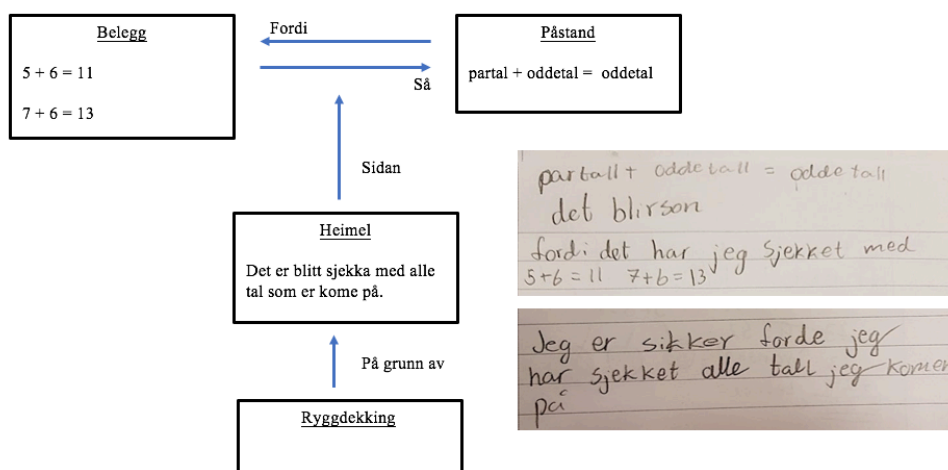 Belegg
5 + 6 = 11
7 + 6 = 13
Fordi
Så
Påstand
partal + oddetal = oddetal
Sidan
Heimel
Det er blitt sjekka med alle
tal som er kome på.
På grunn av
Ryggdekking
partall + oddetall = oddetall
det blirson
fordi det har jeg sjekket med
5+6=11 7+6=13
Jeg er sikker forde jeg
har sjekket alle tall jeg komer
på